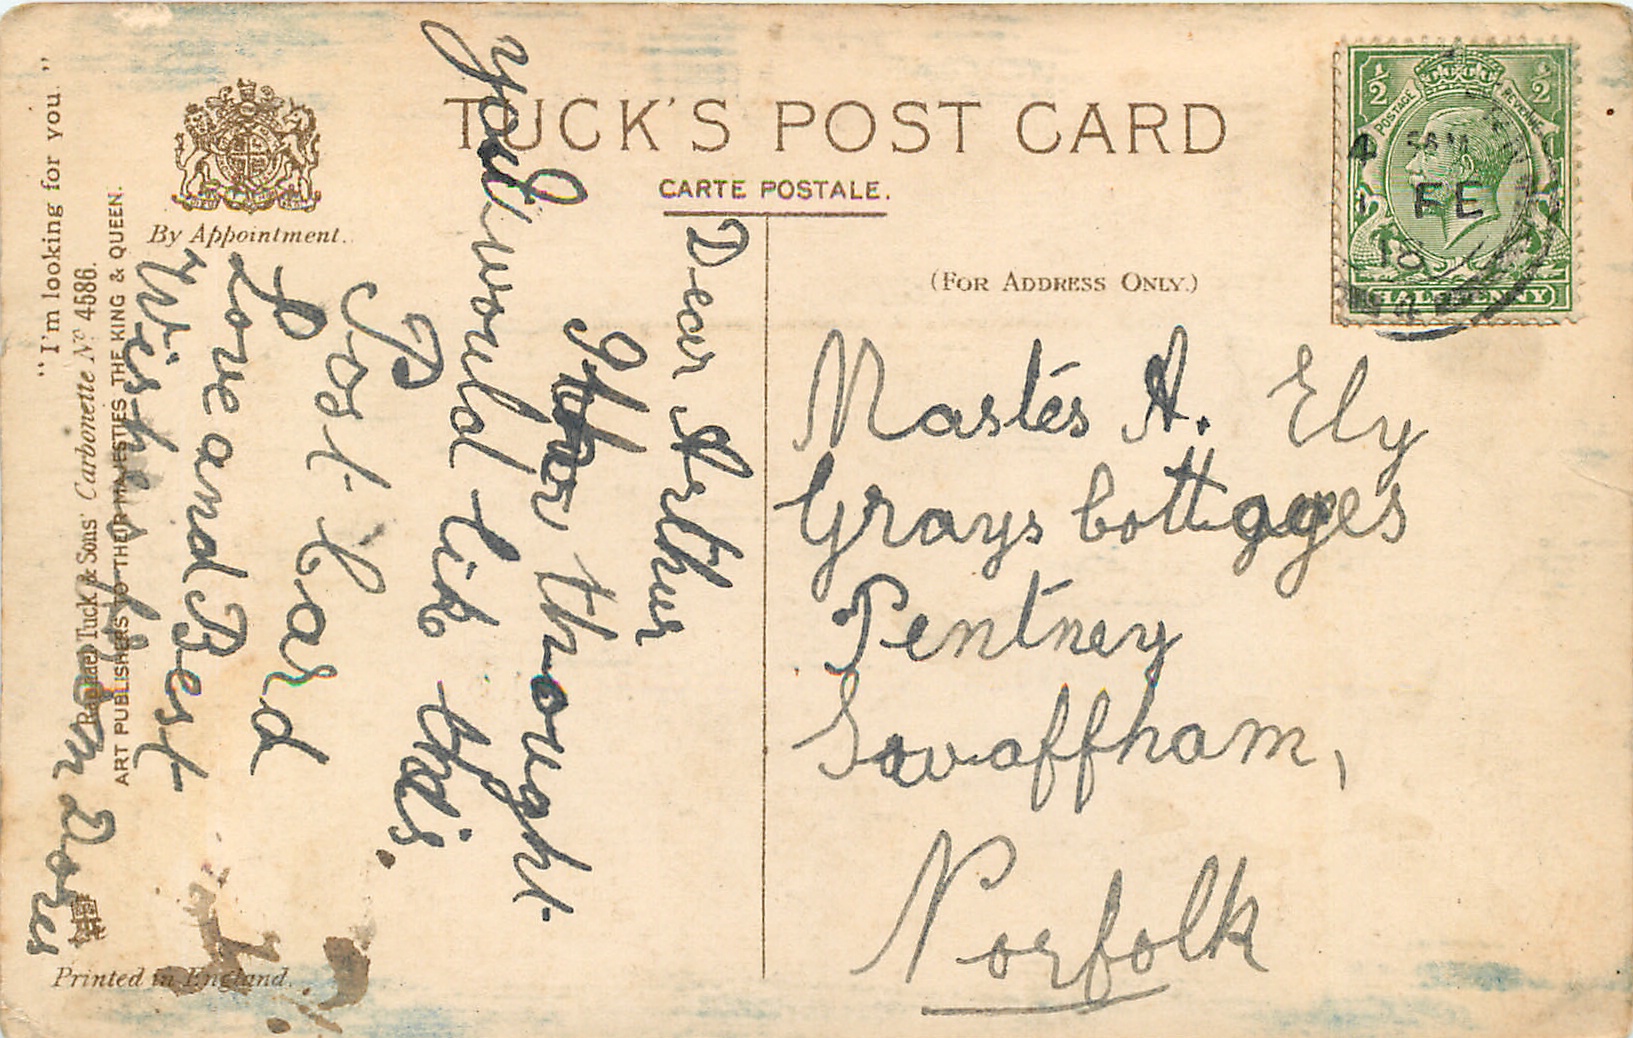 "I'm looking for you."
Raphael Tuck & Sons' Carbonette Nº 4586.
ART PUBLISHERS TO THEIR MAJESTIES THE KING & QUEEN.
By Appointment.
TUCK'S POST CARD
CARTE POSTALE.
(FOR ADDRESS ONLY.)
½ ½
POSTAGE REVENUE
HALFPENNY
FE
Dear Arthur
I thought
you would like this.
P
Post Card
Love and Best
Wishes from Dores
Mastes A. Ely
Grays Cottages
Pentney
Swaffham,
Norfolk
Printed in England.